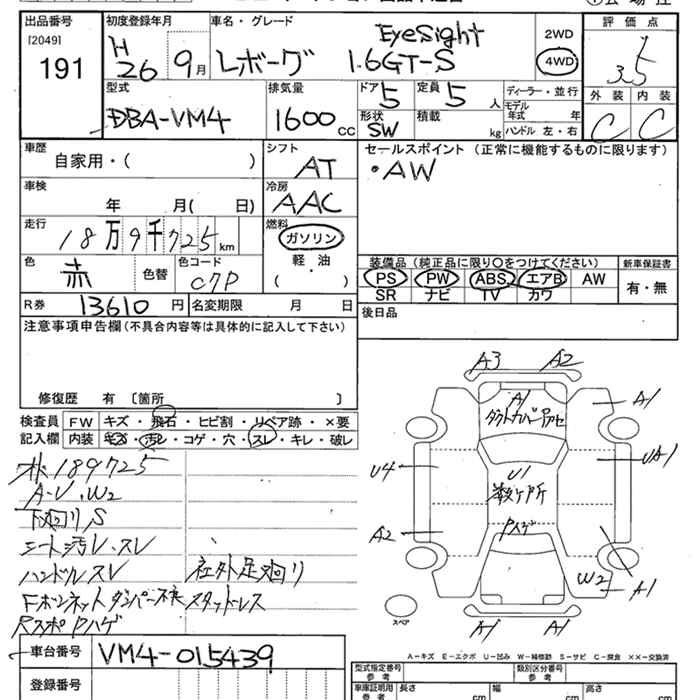 出品番号 初度登録年月 車名・グレード 評価点
[2049]
191
H 26 9月 レボーグ 1.6GT-S EyeSight
2WD
4WD
3.5
型式 排気量 ドア 定員 ディーラー・並行 外装 内装
DBA-VM4 1600cc 5 5人 モデル年式 年 C C
形状 SW 積載 kg ハンドル 左・右
車歴 シフト セールスポイント (正常に機能するものに限ります)
自家用・( ) AT ・AW
車検 冷房
年 月( 日) AAC
走行 燃料
18万9千725km ガソリン
軽・油
( )
色 赤 色替 色コード C7P
装備品 (純正品に限り〇をつけてください) 新車保証書
PS PW ABS エアB AW 有・無
SR ナビ TV カワ
R券 13610円 名変期限 月 日
後日品
注意事項申告欄(不具合内容等は具体的に記入して下さい)
修復歴 有 〔箇所 〕
検査員 FW キズ・飛石・ヒビ割・リペア跡・×要
記入欄 内装 キズ・汚レ・コゲ・穴・スレ・キレ・破レ
189725
A-U、W2
下廻りS
シート汚レ、スレ
ハンドルスレ 社外足廻り
Fボンネットダンパー不良 スタッドレス
RスポPハゲ
車台番号 VM4-015439
登録番号
A3 A2
A1
ダクトカバー
A1
U4
U1
数ヶ所
UA1
A2
Pハゲ
W2
A1
スペア
A1 A1
A-キズ E-エクボ U-凹み W-補修跡 S-サビ C-腐食 ××-交換済
型式指定番号 参考 類別区分番号 参考
車庫証明用 参考 長さ cm 幅 cm 高さ cm